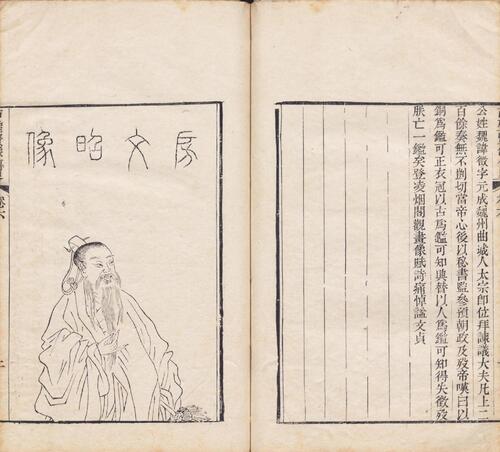 公姓魏諱徵字元成魏州曲城人太宗即位拜諫議大夫凡上二
百餘奏無不剴切當帝心後以秘書監參預朝政及歿帝嘆曰以
銅爲鑑可正衣冠以古爲鑑可知興替以人爲鑑可知得失徵歿
朕亡一鑑矣登凌烟閣觀畫像賦詩痛悼謚文貞
房文昭像
卷六